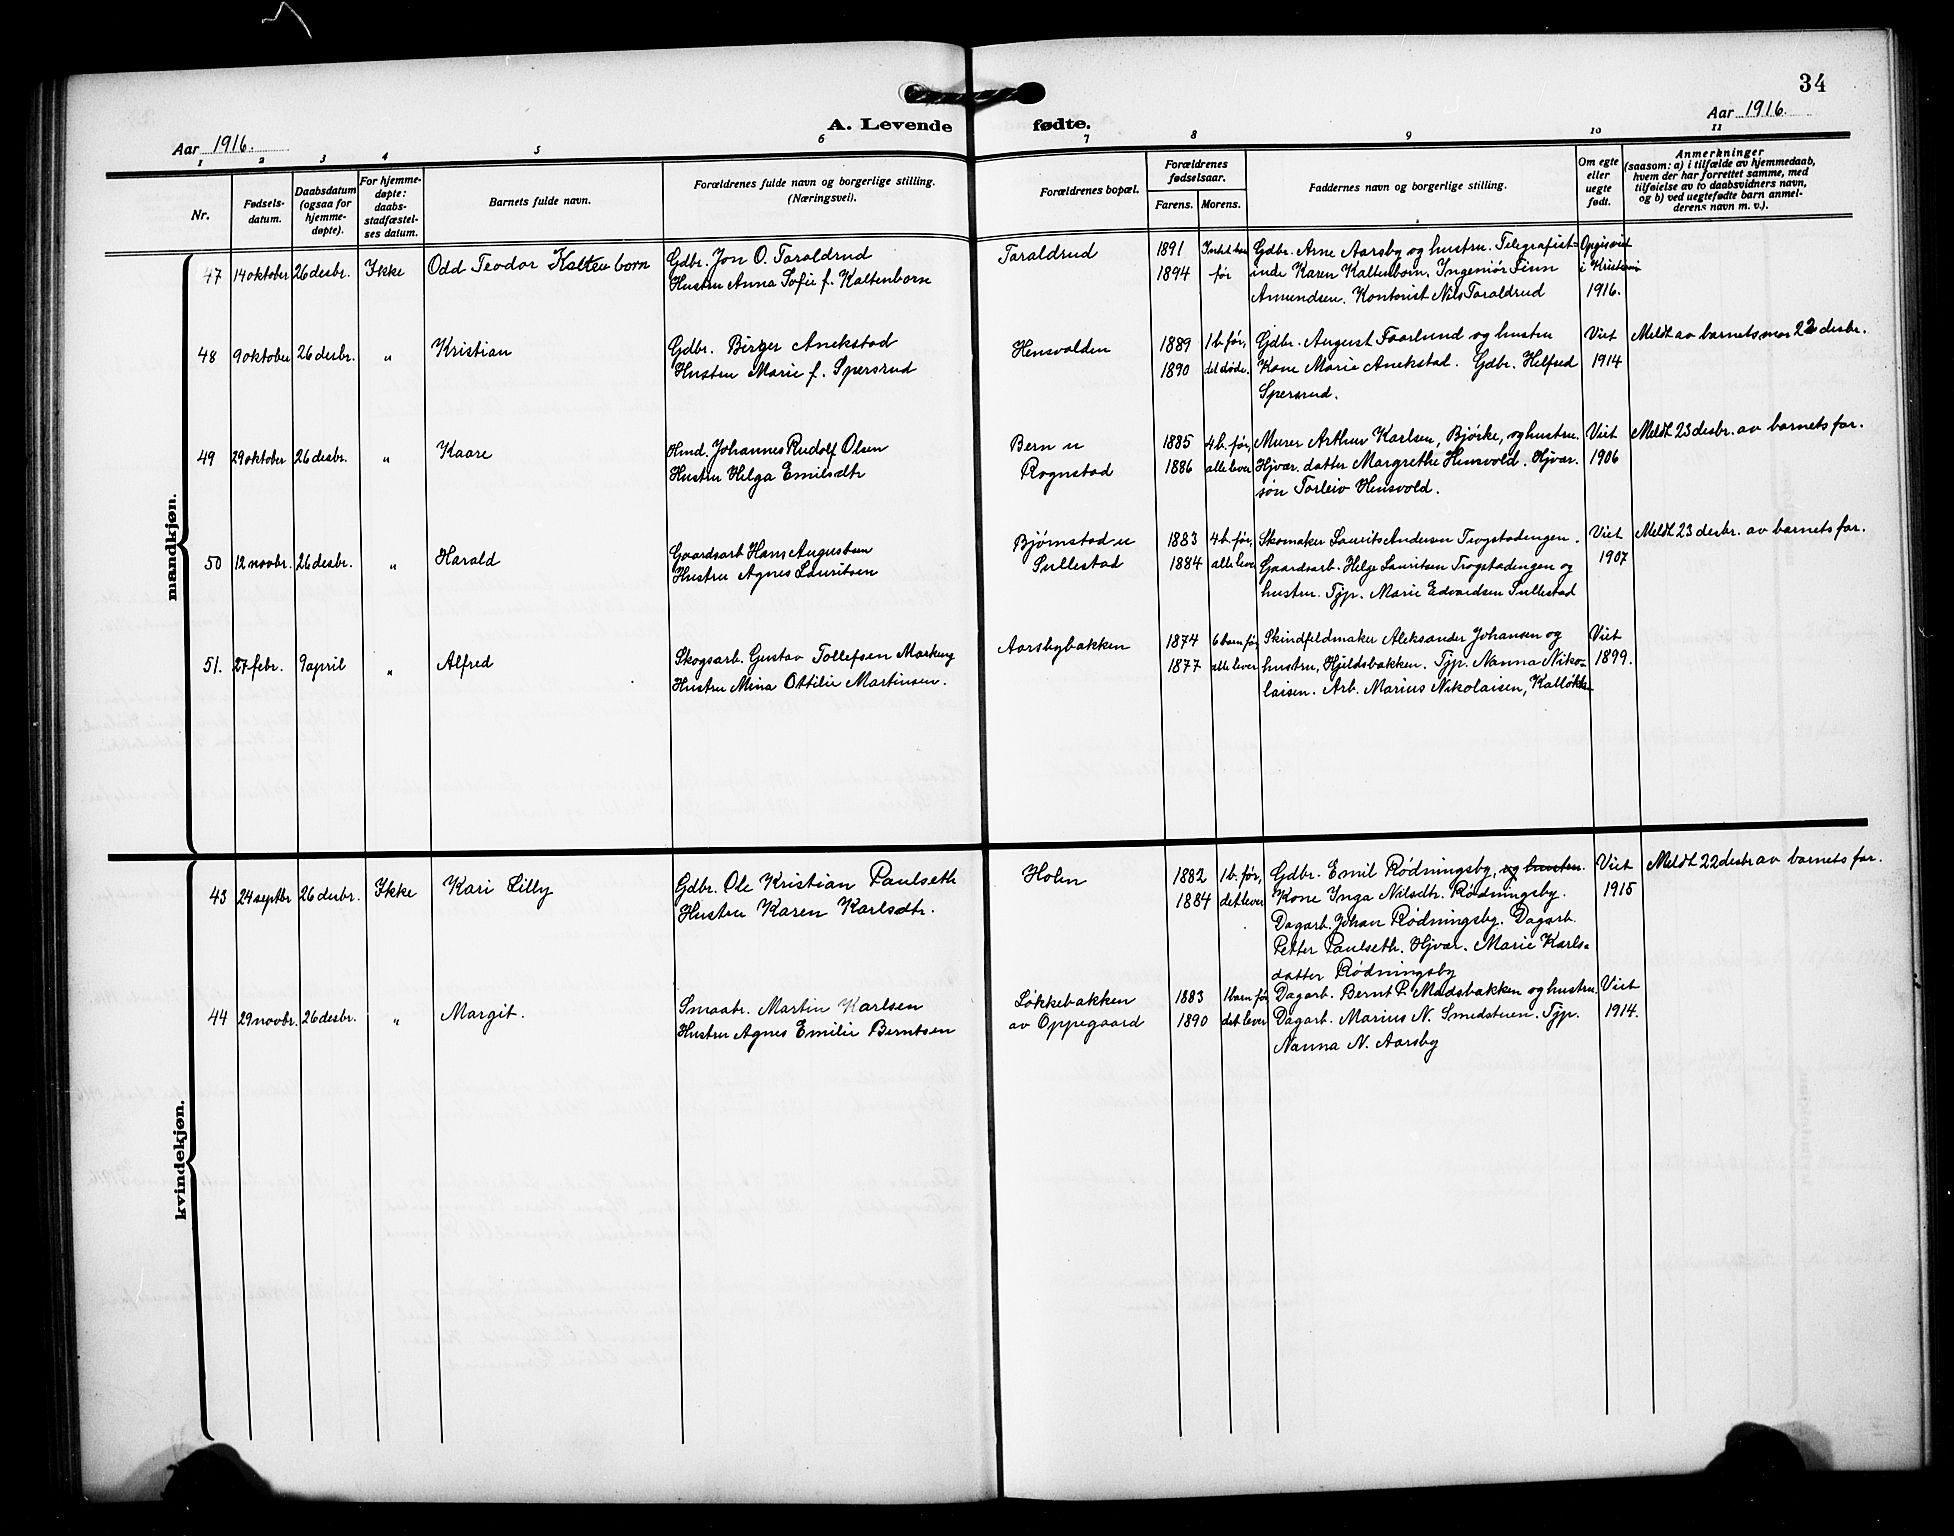 34
A. Levende fødte.
Aar 1916.
Aar 1916.
1 2 3 4 5 6 7 8 9 10 11
Nr.
Fødsels-
datum.
Daabsdatum
(ogsaa for
hjemme-
døpte).
For hjemme-
døpte:
daabs-
stadfæstel-
ses datum.
Barnets fulde navn.
Forældrenes fulde navn og borgerlige stilling.
(Næringsvei).
Forældrenes bopæl.
Forældrenes
fødselsaar.
Farens. Morens.
Faddernes navn og borgerlige stilling.
Om egte
eller
uegte
født.
Anmerkninger
(saasom: a) i tilfælde av hjemmedaab,
hvem der har forrettet samme, med
tilføielse av to daabsvidners navn,
og b) ved uegtefødte barn anmel-
derens navn m. v.).
mandkjøn.
47 14 oktober 26 desbr. Ikke Odd Teodor Kaltenborn
Gdbr. Jon O. Taraldrud
Hustru Anna Sofie f. Kaltenborn
Taraldrud
1891
1894
før
Gdbr. Arne Aarsby og hustru. Telegrafist=
inde Karen Kaltenborn, Ingeniør Finn
Amundsen. Kontorist Nils Taraldrud
i
1916.
48 9 oktober 26 desbr. " Kristian
Gdbr. Birger Anekstad
Hustru Marie f. Spersrud
Hensvolden
1889 1 b. før,
1890 det døde.
Gdbr. August Faarlund og hustru
Kone Marie Anekstad. Gdbr. Helfred
Spersrud.
Viet
1914
Meldt av barnets mor 22 desbr.
49 29 oktober 26 desbr. " Kaare
Hmd. Johannes Rudolf Olsen
Hustru Helga Emilsdtr
Bern u
Rognstad
1885 4 b. før,
1886 alle lever
Murer Arthur Karlsen, Bjørke, og hustru.
Hjvær. datter Margrethe Hensvold. Hjvær.
søn Torleiv Hensvold.
Viet
1906
Meldt 23 desbr. av barnets far.
50 12 novbr. 26 desbr. " Harald
Gaardsarb. Hans Augustsen
Hustru Agnes Lauritsen
Bjørnstad u
Sullestad
1883 4 b. før,
1884 alle lever
Skomaker Laurits Andersen Trogstadengen.
Gaardsarb. Helge Lauritsen Trogstadengen og
hustru. Tjp. Marie Edvardsen Sullestad
Viet
1907
Meldt 23 desbr. av barnets far.
51. 27 febr. 9 april " Alfred
Skogsarb. Gustav Tollefsen
Hustru Mina Ottilie Martinsen.
Aarsbybakken
1874 6 barn før
1877 alle lever
Skindfeldmaker Aleksander Johansen og
hustru, Hjeldsbakken. Tjp. Nanna Niko=
laisen. Arb. Marius Nikolaisen,
Viet
1899.
kvindekjøn.
43 24 septbr 26 desbr. Ikke Kari Lilly
Gdbr. Ole Kristian Paulseth
Hustru Karen Karlsdtr.
Holen
1882 1 b. før,
1884 det lever
Gdbr. Emil Rødningsby, og hustru.
Kone Inga Nilsdtr. Rødningsby.
Dagarb. Johan Rødningsby. Dagarb.
Petter Paulseth. Hjvær. Marie Karls=
datter Rødningsby
Viet
1915
Meldt 22 desbr av barnets far.
44 29 novbr. 26 desbr. " Margit.
Smaabr. Martin Karlsen
Hustru Agnes Emilie Berntsen
Løkkebakken
av Oppegaard
1883 1 barn før
1890 det lever
Dagarb. Bernt P. Madsbakken og hustru
Dagarb. Marius N. Smedstuen. Tjp.
Nanna N. Aarsby
Viet
1914.